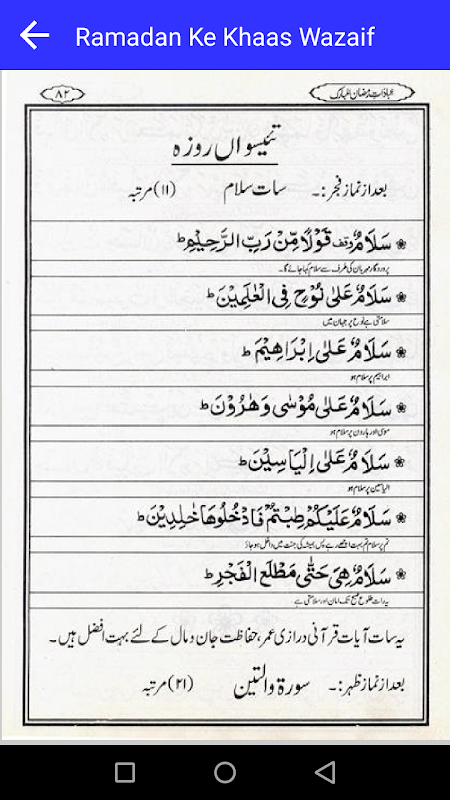 Ramadan Ke Khaas Wazaif
عبادات رمضان المبارک
۸۲
تئیسواں روزہ
بعد از نماز فجر :۔ سات سلام (۱۱) مرتبہ
سَلَامٌ وقف قَوْلًا مِّنْ رَّبِّ الرَّحِيْمِ ط
پروردگار مہربان کی طرف سے سلام کہا جائے گا۔
سَلَامٌ عَلٰى نُوْحٍ فِى الْعٰلَمِيْنَ ط
سلامتی ہے نوح پر جہان میں
سَلَامٌ عَلٰى اِبْرَاهِيْمَ ط
ابراہیم پر سلام ہو
سَلَامٌ عَلٰى مُوْسٰى وَهٰرُوْنَ ط
موسیٰ اور ہارون پر سلام ہو
سَلَامٌ عَلٰى اِلْيَاسِيْنَ ط
الیاسین پر سلام ہو
سَلَامٌ عَلَيْكُمْ طِبْتُمْ فَادْخُلُوْهَا خٰلِدِيْنَ ط
تم پر سلام تم بہت اچھے رہے پس ہمیشہ کی جنت میں داخل ہو جاؤ
سَلَامٌ هِىَ حَتّٰى مَطْلَعِ الْفَجْرِ ط
یہ رات طلوع صبح تک امان اور سلامتی ہے
یہ سات آیات قرآنی درازی عمر، حفاظت جان و مال کے لئے بہت افضل ہیں۔
بعد از نماز ظہر :۔ سورۃ والتین (۲۱) مرتبہ